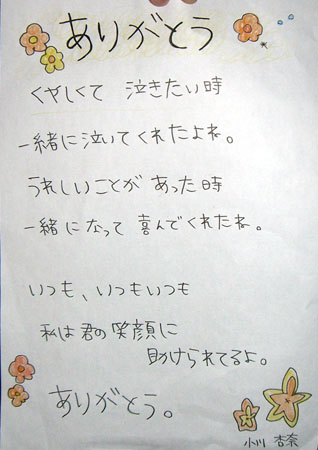 ありがとう
くやしくて 泣きたい時
一緒に泣いてくれたよね。
うれしいことが あった時
一緒になって 喜んでくれたね。
いつも、いつもいつも
私は君の笑顔に
助けられてるよ。
ありがとう。
小川 杏奈